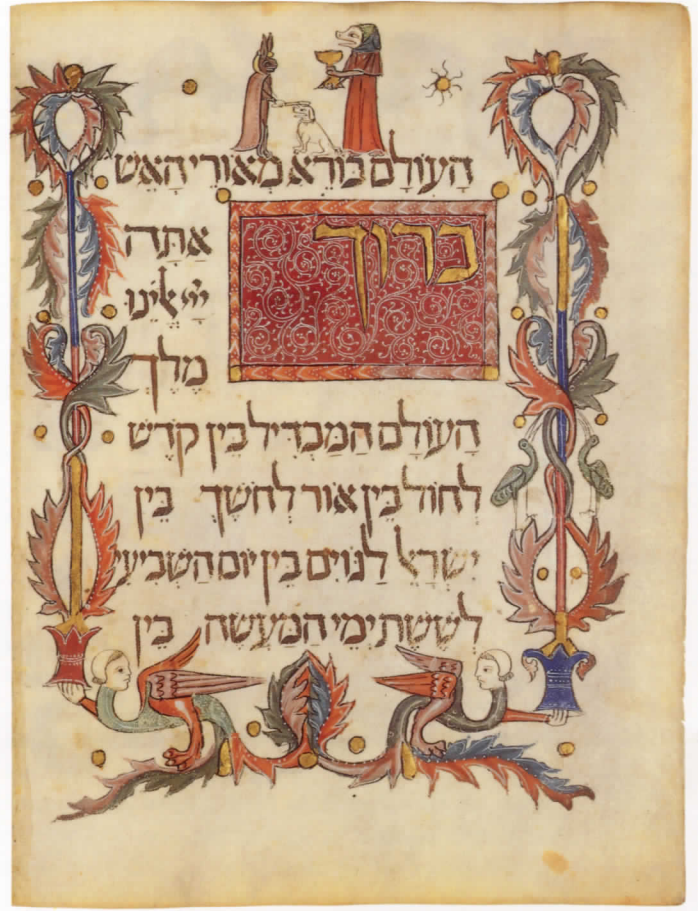 הָעוֹלָם בּוֹרֵא מְאוֹרֵי הָאֵשׁ
בָּרוּךְ אַתָּה
יְיָ אֱלֵינוּ
מֶלֶךְ
הָעוֹלָם הַמַּבְדִּיל בֵּין קֹדֶשׁ
לְחוֹל בֵּין אוֹר לְחֹשֶׁךְ בֵּין
יִשְׂרָאֵל לַגּוֹיִם בֵּין יוֹם הַשְּׁבִיעִי
לְשֵׁשֶׁת יְמֵי הַמַּעֲשֶׂה בֵּין